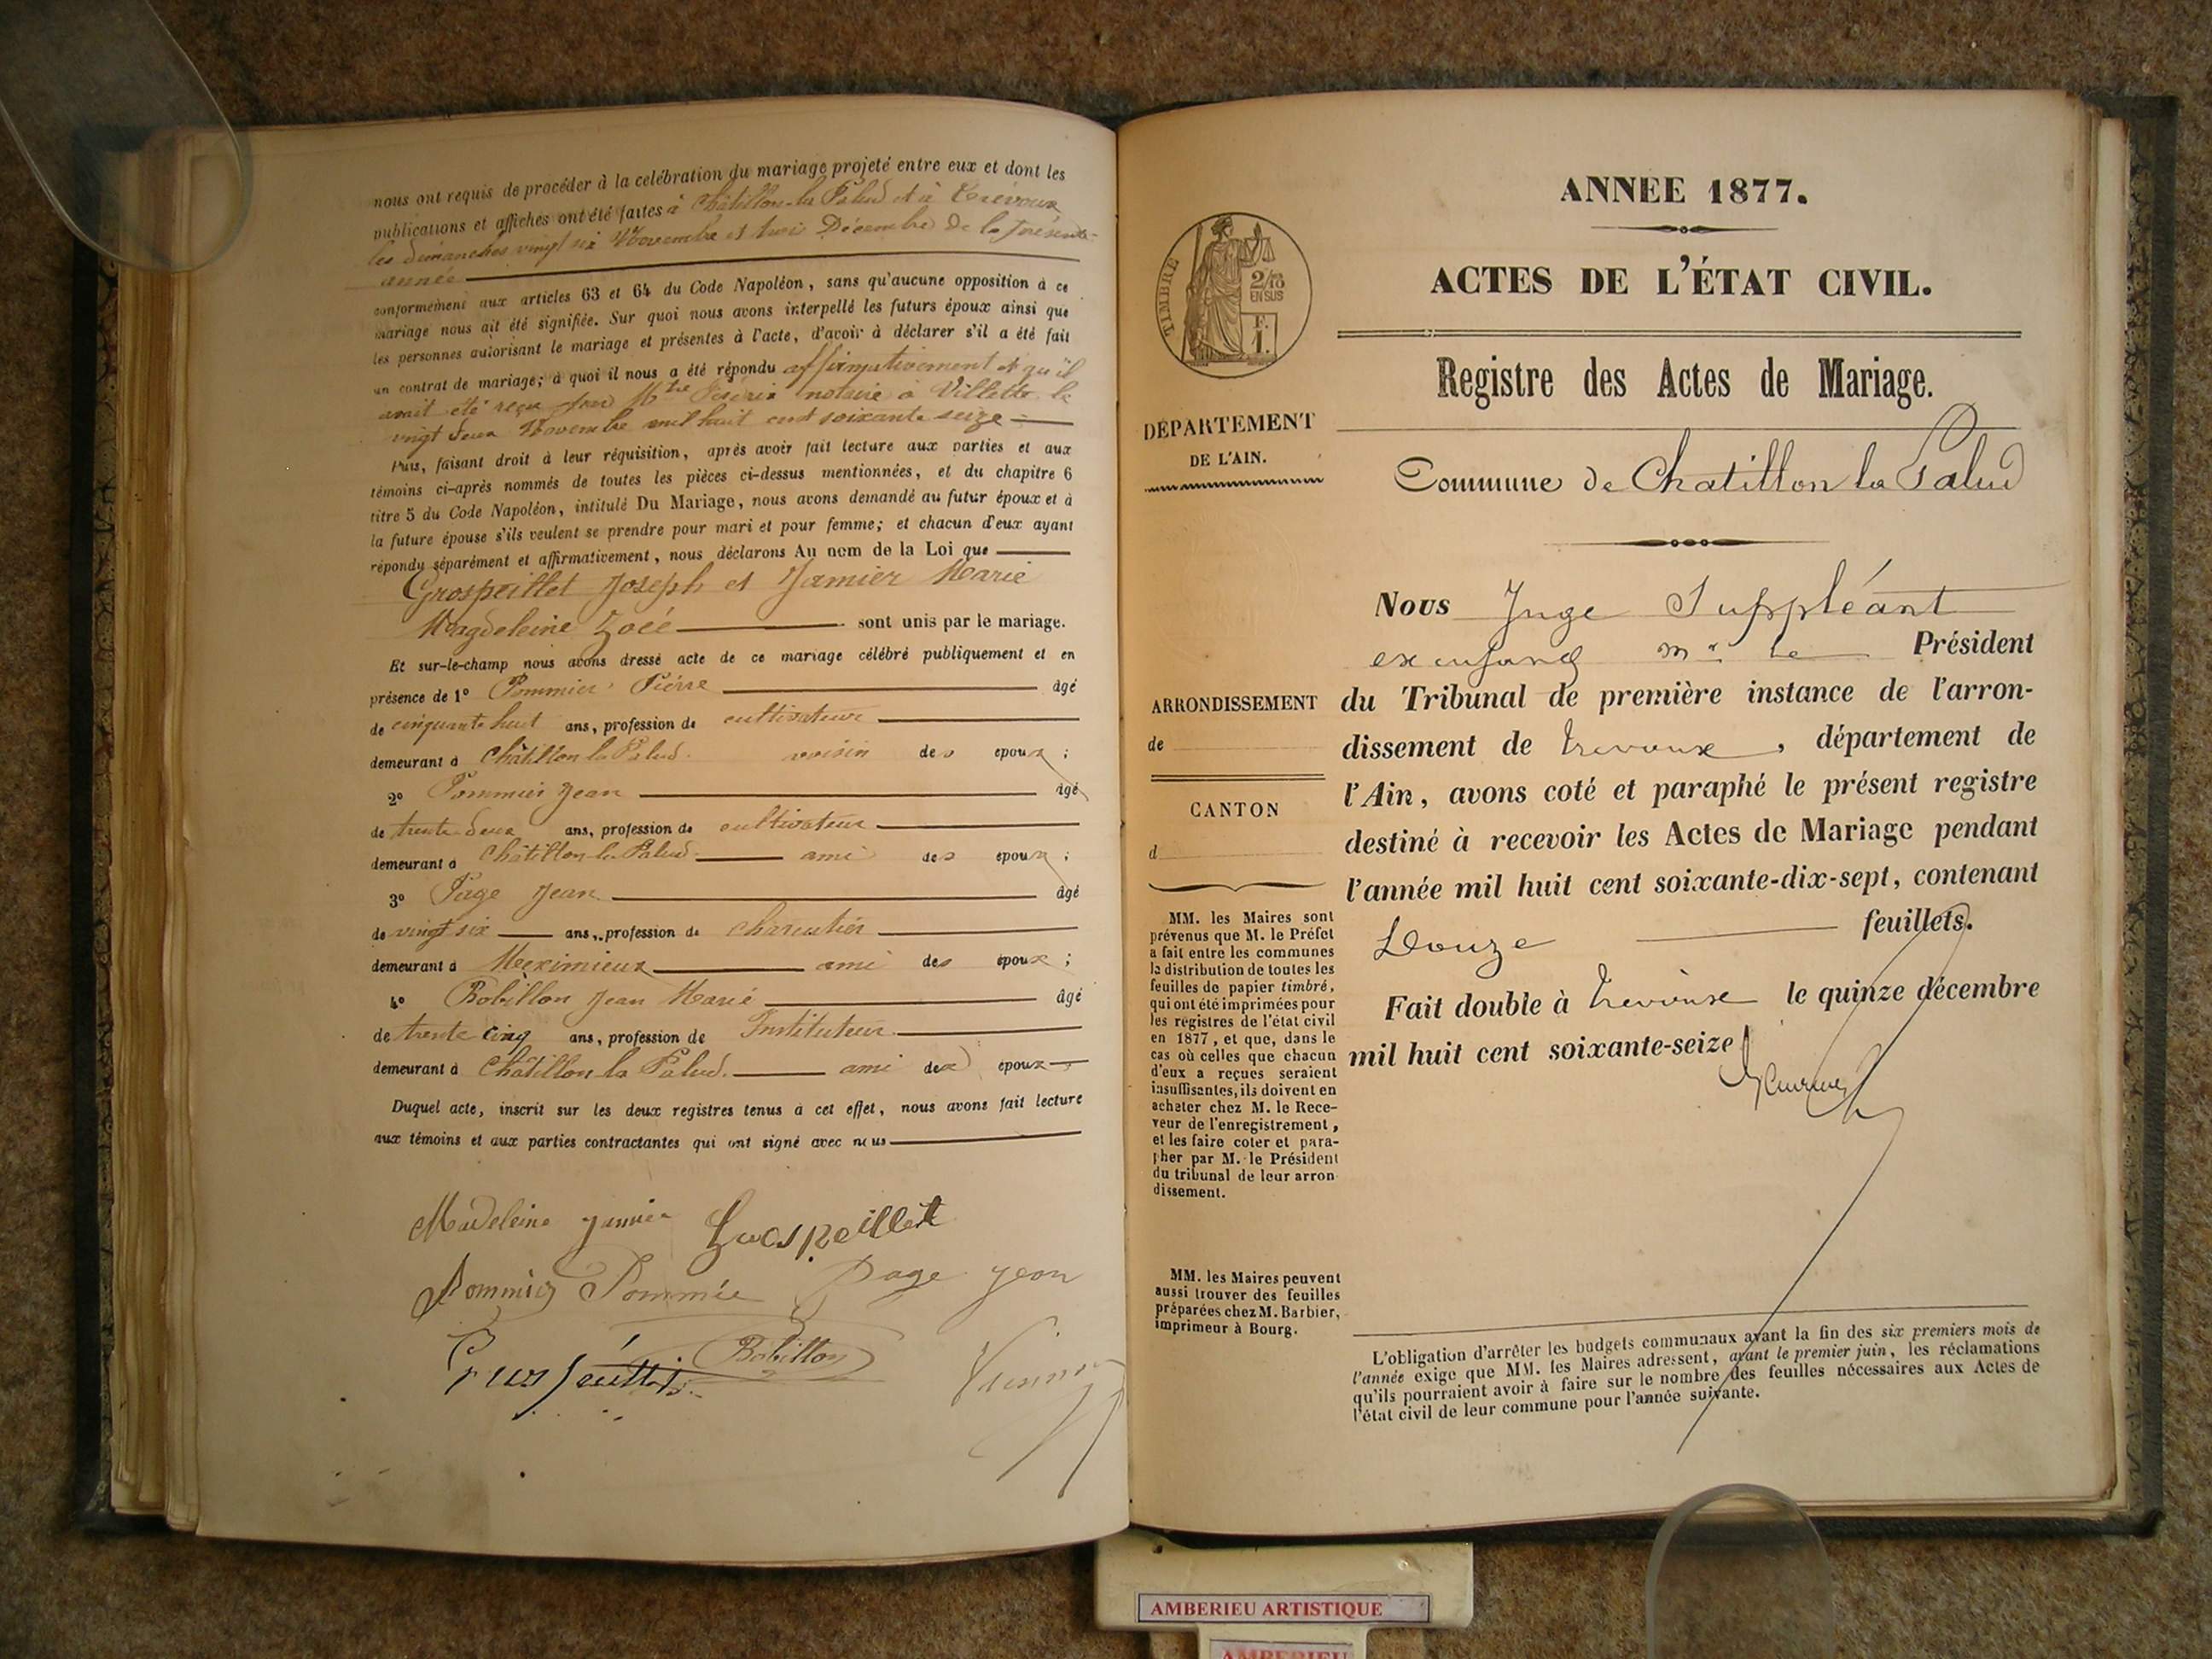 nous ont requis de procéder à la celébration du mariage projeté entre eux et dont les
publications et affiches ont été faites à Châtillon-la Palud et à Trévoux
les dimanches vingt six Novembre et trois Décembre de la présente
année
conformément aux articles 63 et 64 du Code Napoléon, sans qu'aucune opposition à ce
mariage nous ait été signifiée. Sur quoi nous avons interpellé les futurs époux ainsi que
les personnes autorisant le mariage et présentes à l'acte, d'avoir à déclarer s'il a été fait
un contrat de mariage; à quoi il nous a été répondu affirmativement et qu'il
avait été reçu par Mtre notaire à Villette le
vingt deux Novembre mil huit cent soixante seize
Puis, faisant droit à leur réquisition, après avoir fait lecture aux parties et aux
témoins ci-après nommés de toutes les pièces ci-dessus mentionnées, et du chapitre 6
titre 5 du Code Napoléon, intitulé Du Mariage, nous avons demandé au futur époux et à
la future épouse s'ils veulent se prendre pour mari et pour femme; et chacun d'eux ayant
répondu séparément et affirmativement, nous déclarons Au nom de la Loi que
Grospeillet Joseph et Jamier Marie
Magdeleine Zoée sont unis par le mariage.
Et sur-le-champ nous avons dressé acte de ce mariage célébré publiquement et en
présence de 1º Pommier Pierre âgé
de cinquante huit ans, profession de cultivateur
demeurant à Châtillon la Palud. voisin des époux;
2º Pommier Jean âgé
de trente deux ans, profession de cultivateur
demeurant à Châtillon-la Palud. ami des époux;
3º Page Jean âgé
de vingt six ans, profession de charcutier
demeurant à Meximieux ami des époux;
4º Bobillon Jean Marie âgé
de trente cinq ans, profession de Instituteur
demeurant à Châtillon la Palud. ami des époux
Duquel acte, inscrit sur les deux registres tenus à cet effet, nous avons fait lecture
aux témoins et aux parties contractantes qui ont signé avec nous
Madeleine Jamier Grospeillet
Pommier Pommié Page Jean
Bobillon
ANNEE 1877.
ACTES DE L'ÉTAT CIVIL.
TIMBRE
2/10
EN SUS
F.
1.
Registre des Actes de Mariage.
DÉPARTEMENT
DE L'AIN.
Commune de Chatillon la Palud
Nous Juge Suppléant
Mr le Président
du Tribunal de première instance de l'arron-
dissement de Trevoux, département de
l'Ain, avons coté et paraphé le présent registre
destiné à recevoir les Actes de Mariage pendant
l'année mil huit cent soixante-dix-sept, contenant
Douze feuillets.
Fait double à Trevoux le quinze décembre
mil huit cent soixante-seize
ARRONDISSEMENT
de
CANTON
d
MM. les Maires sont
prévenus que M. le Préfet
a fait entre les communes
la distribution de toutes les
feuilles de papier timbré,
qui ont été imprimées pour
les registres de l'état civil
en 1877, et que, dans le
cas où celles que chacun
d'eux a reçues seraient
insuffisantes, ils doivent en
acheter chez M. le Rece-
veur de l'enregistrement,
et les faire coter et para-
pher par M. le Président
du tribunal de leur arron
dissement.
MM. les Maires peuvent
aussi trouver des feuilles
préparées chez M. Barbier,
imprimeur à Bourg.
L'obligation d'arrêter les budgets communaux avant la fin des six premiers mois de
l'année exige que MM. les Maires adressent, avant le premier juin, les réclamations
qu'ils pourraient avoir à faire sur le nombre des feuilles nécessaires aux Actes de
l'état civil de leur commune pour l'année suivante.
AMBERIEU ARTISTIQUE
AMBERIEU